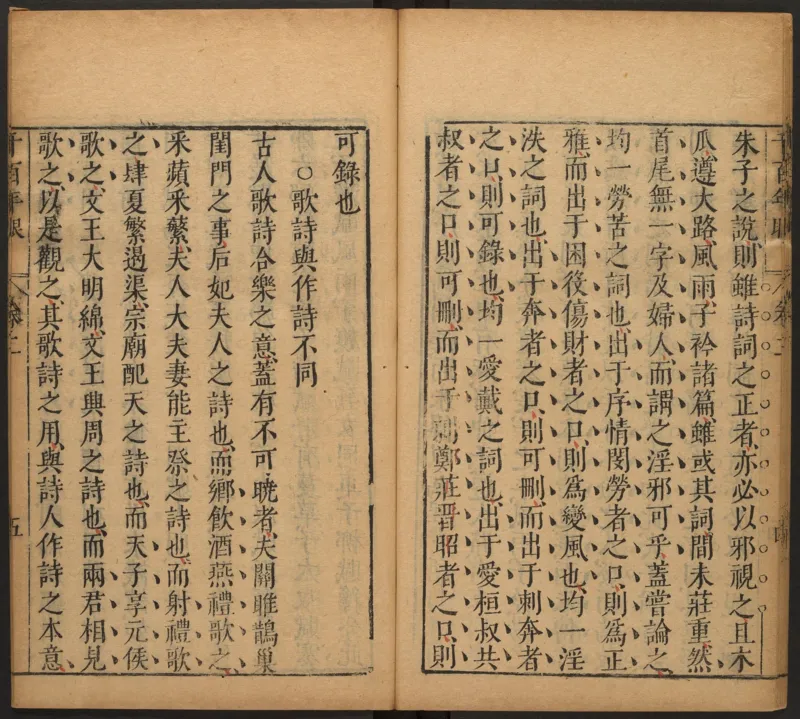 朱子之說則雖詩詞之正者亦必以邪視之且木
瓜遵大路風雨子衿諸篇雖或其詞間未莊重然
首尾無一字及婦人而謂之淫邪可乎蓋嘗論之
均一勞苦之詞也出于序情閔勞者之口則爲正
雅而出于困役傷財者之口則爲變風也均一淫
泆之詞也出于奔者之口則可刪而出于刺奔者
之口則可錄也均一愛戴之詞也出于愛桓叔共
叔者之口則可刪而出于刺鄭莊晋昭者之口則
可錄也
○歌詩與作詩不同
古人歌詩合樂之意蓋有不可曉者夫關雎鵲巢
閨門之事后妃夫人之詩也而鄉飲酒燕禮歌之
采蘋采蘩夫人大夫妻能主祭之詩也而射禮歌
之肆夏繁遏渠宗廟配天之詩也而天子享元侯
歌之文王大明緜文王興周之詩也而兩君相見
歌之以是觀之其歌詩之用與詩人作詩之本意
千百年眼 卷二 五